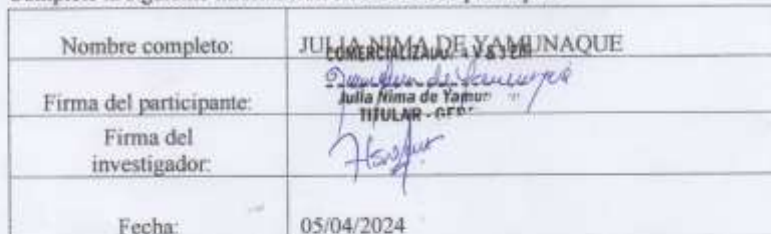 Nombre completo: JULIA NIMA DE YAMUNAQUE
Firma del participante:
Julia Nima de
TITULAR -
Firma del
investigador:
Fecha: 05/04/2024